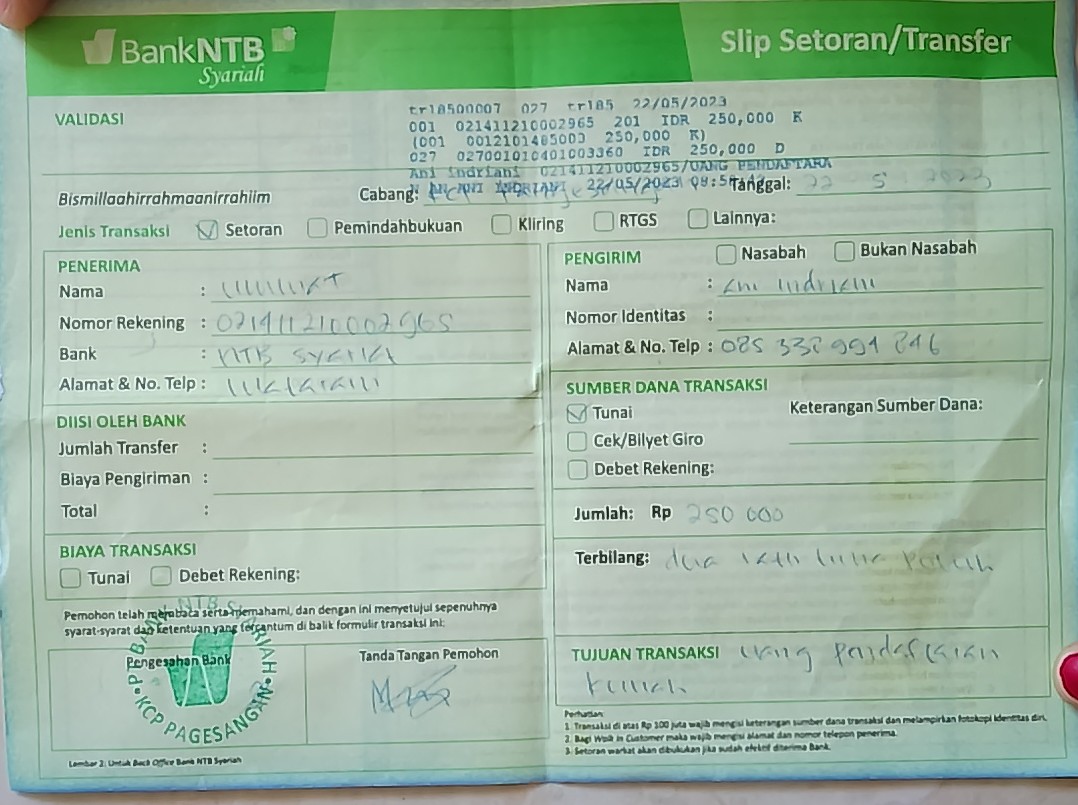 BankNTB
Syariah
Slip Setoran/Transfer
VALIDASI
tr18500007 027 tr185 22/05/2023
001 021411210002965 201 IDR 250,000 K
(001 0012101485003 250,000 K)
027 027001010401003360 IDR 250,000 D
Ani Indriani 021411210002965/UANG PENDAFTARA
ANI INDRIANI 22/05/2023
Bismillaahirrahmaanirrahiim
Cabang: KCP
Tanggal: 22 5 2023
Jenis Transaksi Setoran Pemindahbukuan Kliring RTGS Lainnya:
PENERIMA
Nama :
Nomor Rekening : 021411210002965
Bank : NTB Syariah
Alamat & No. Telp :
DIISI OLEH BANK
Jumlah Transfer :
Biaya Pengiriman :
Total :
BIAYA TRANSAKSI
Tunai Debet Rekening:
Pemohon telah membaca serta memahami, dan dengan ini menyetujui sepenuhnya
syarat-syarat dan ketentuan yang tercantum di balik formulir transaksi ini:
Pengesahan Bank
PT BANK NTB SYARIAH
KCP PAGESANGAN
Tanda Tangan Pemohon
Lembar 2: Untuk Back Office Bank NTB Syariah
PENGIRIM Nasabah Bukan Nasabah
Nama : Ani Indriani
Nomor Identitas :
Alamat & No. Telp : 085 338 991 846
SUMBER DANA TRANSAKSI
Tunai Keterangan Sumber Dana:
Cek/Bilyet Giro
Debet Rekening:
Jumlah: Rp 250 000
Terbilang: dua ratus lima puluh
TUJUAN TRANSAKSI uang pendaftaran
kuliah
Perhatian
1. Transaksi di atas Rp 100 juta wajib mengisi keterangan sumber dana transaksi dan melampirkan fotokopi identitas diri.
2. Bagi Walk in Customer maka wajib mengisi alamat dan nomor telepon penerima.
3. Setoran warkat akan dibukukan jika sudah efektif diterima Bank.